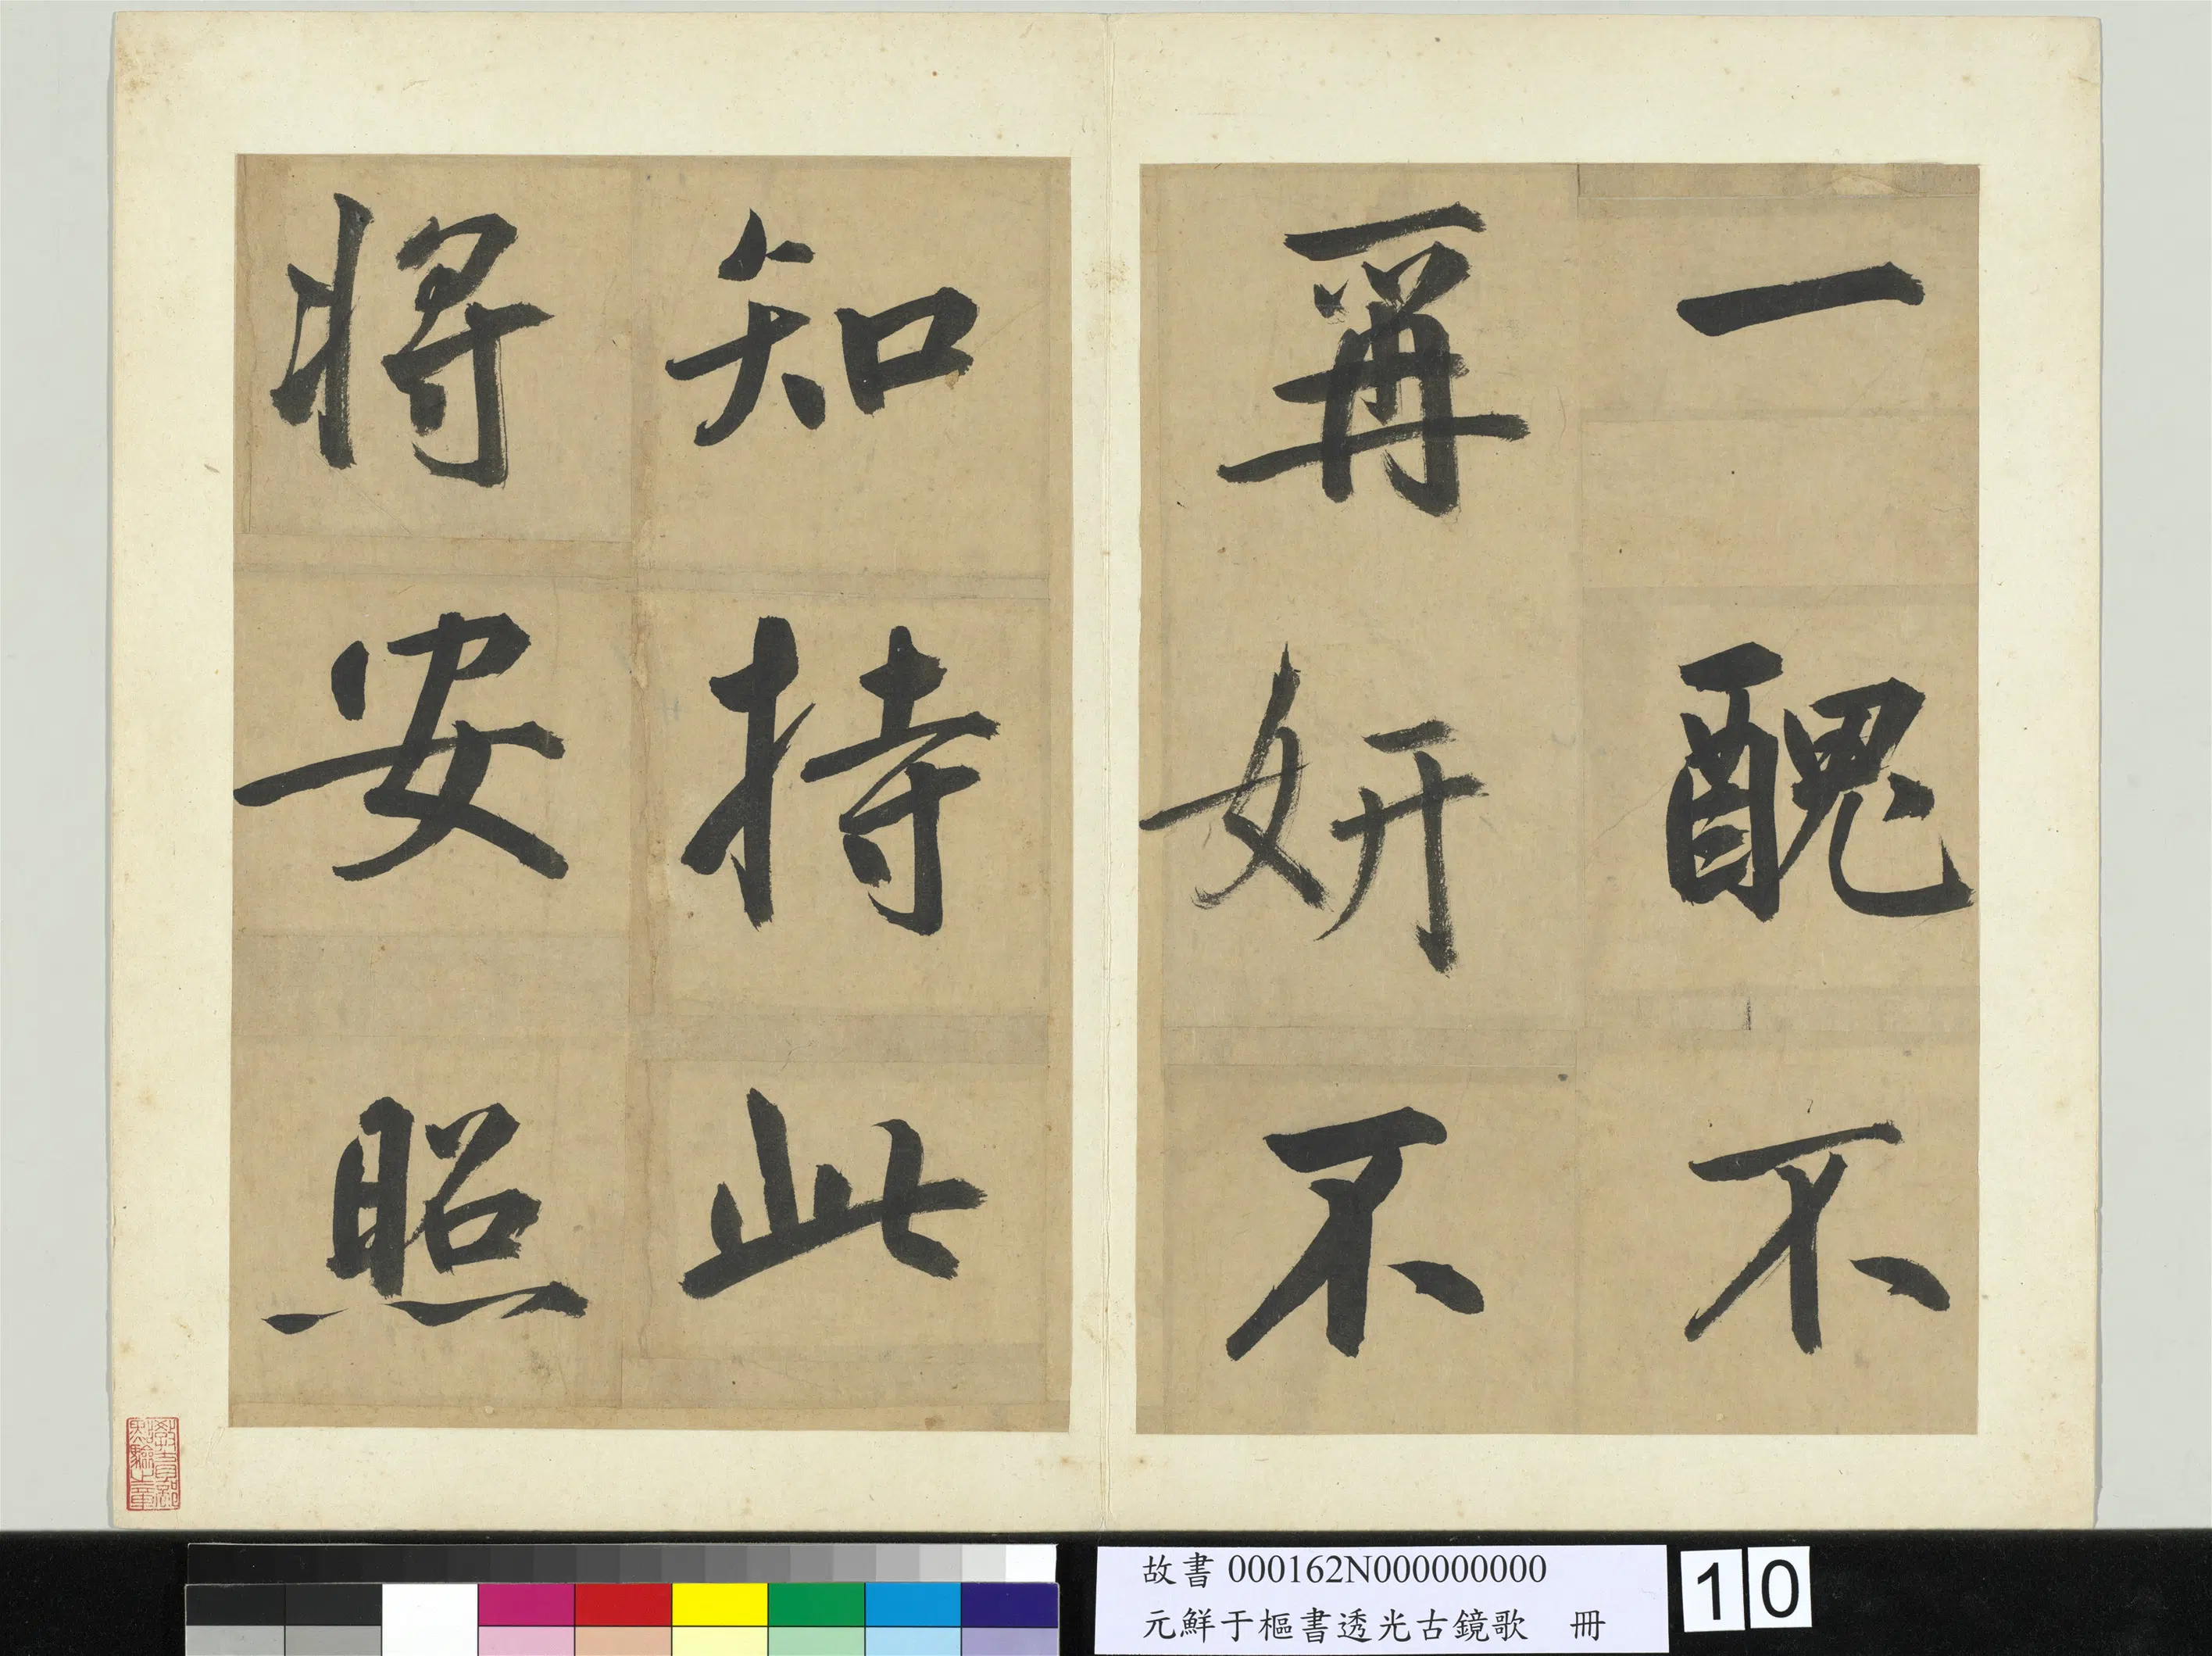 一醜不
再妍不
知持此
將安照
教育部
點驗之章
故書 000162N000000000
元鮮于樞書透光古鏡歌 冊
10